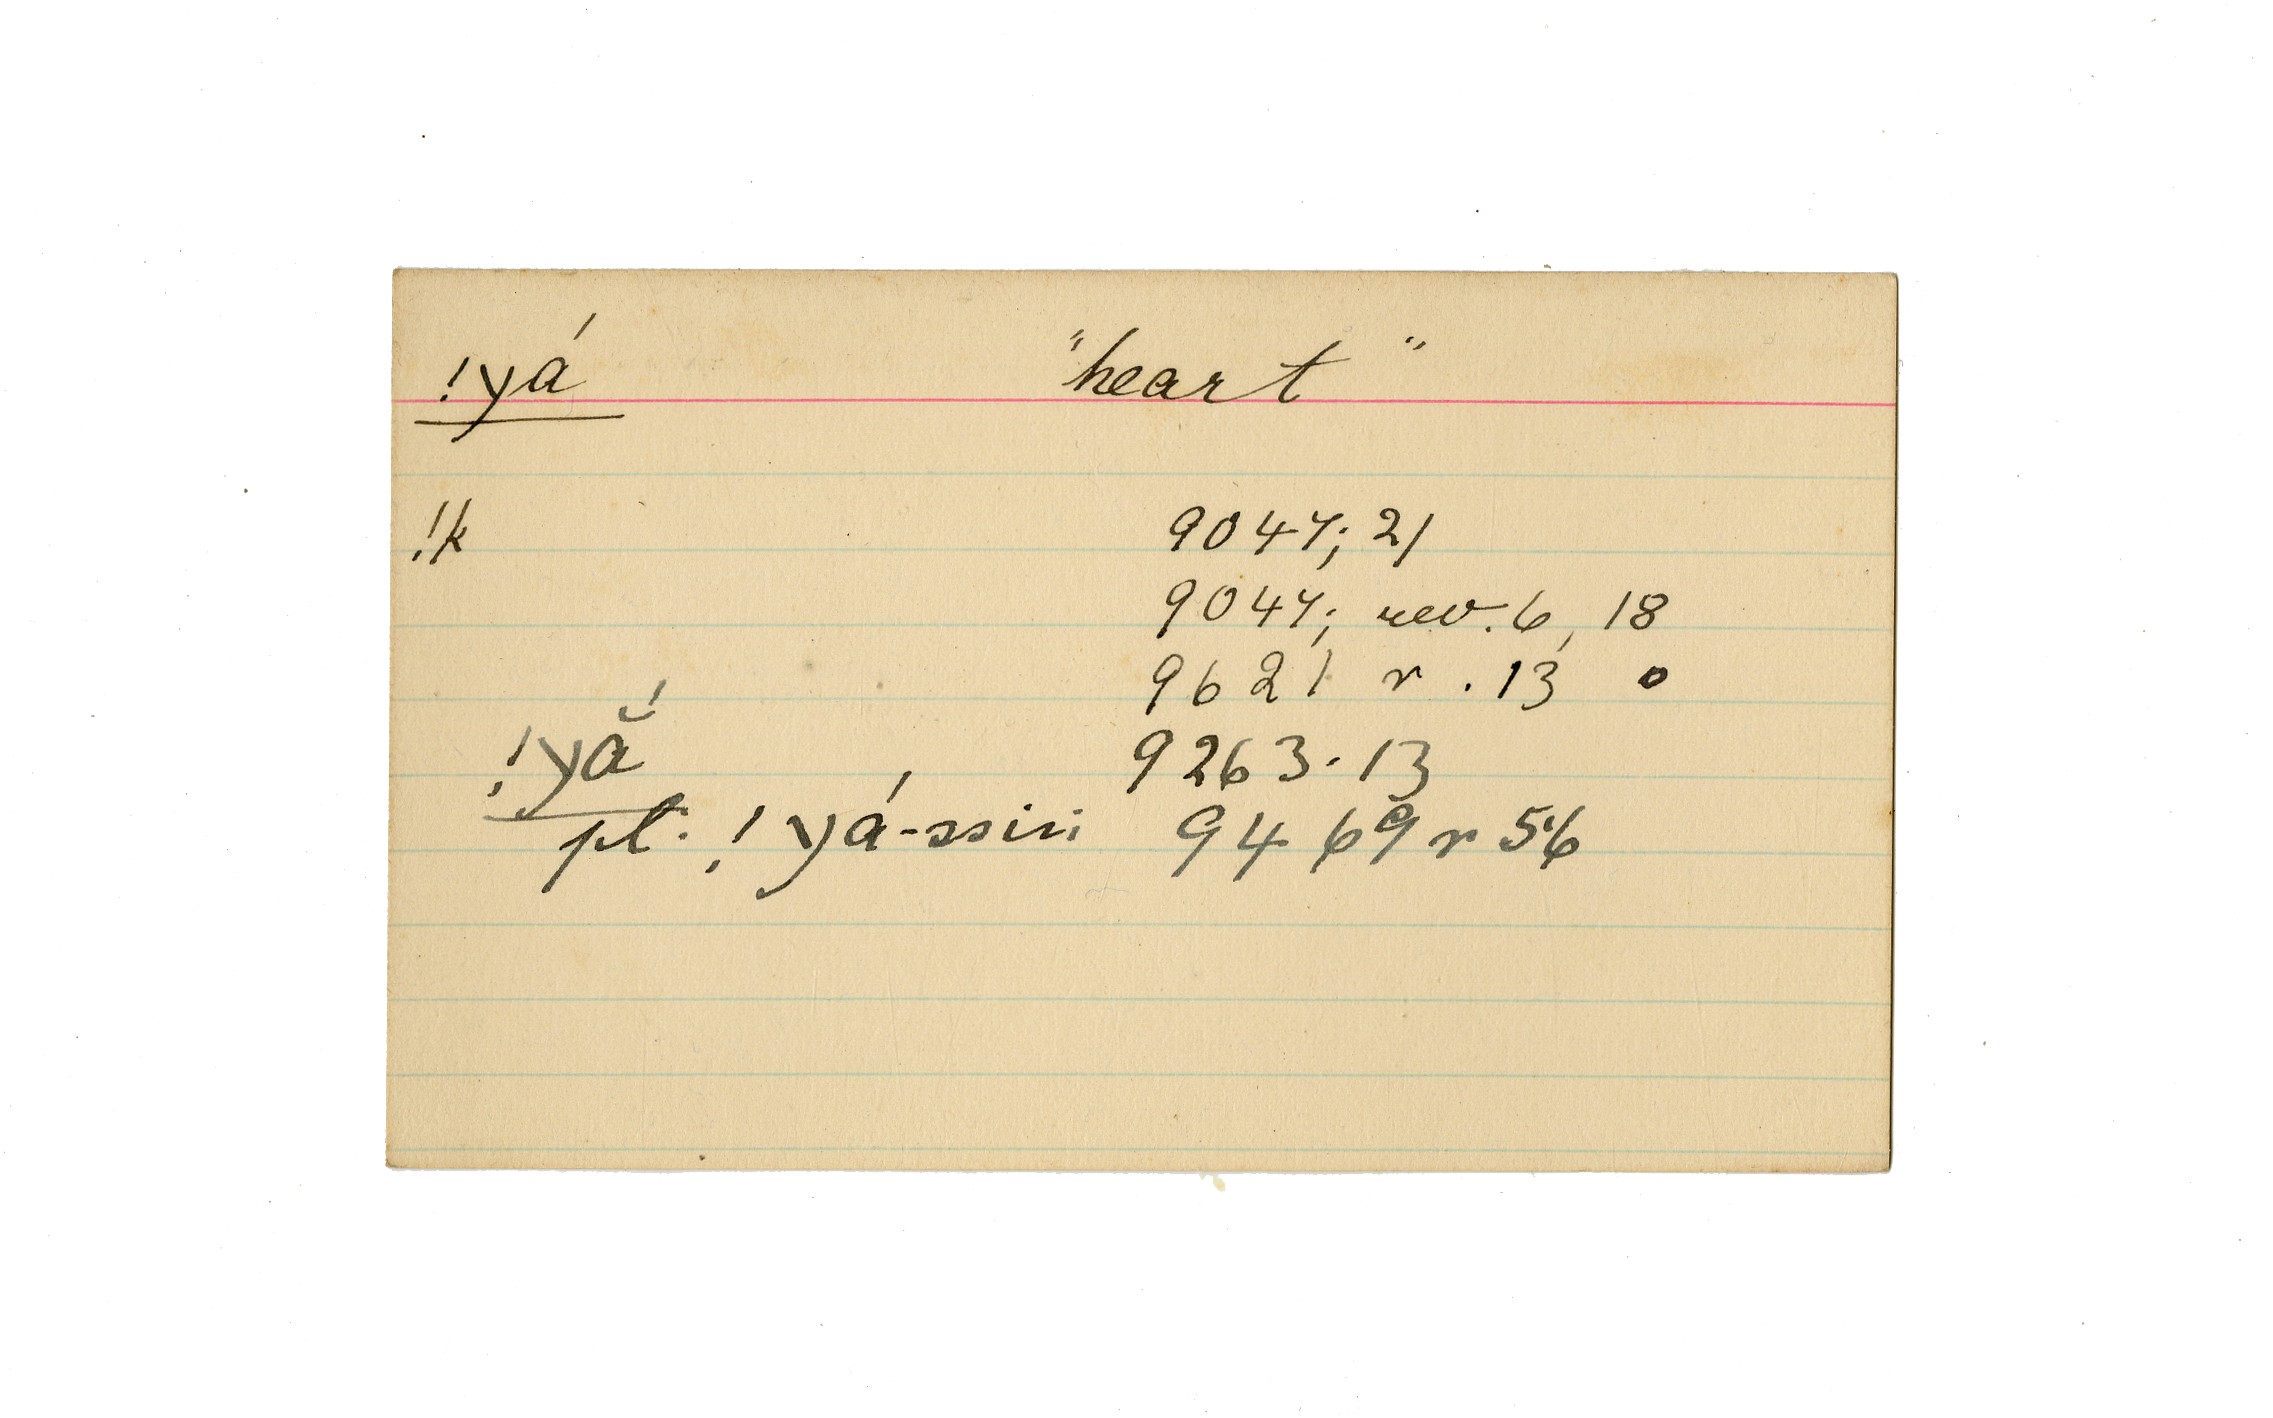 !yá "heart"
!k 9047; 21
9047; rev. 6, 18
9621 r. 13 o
!yắ 9263. 13
pl. !yá-ssiri 9469 r 56